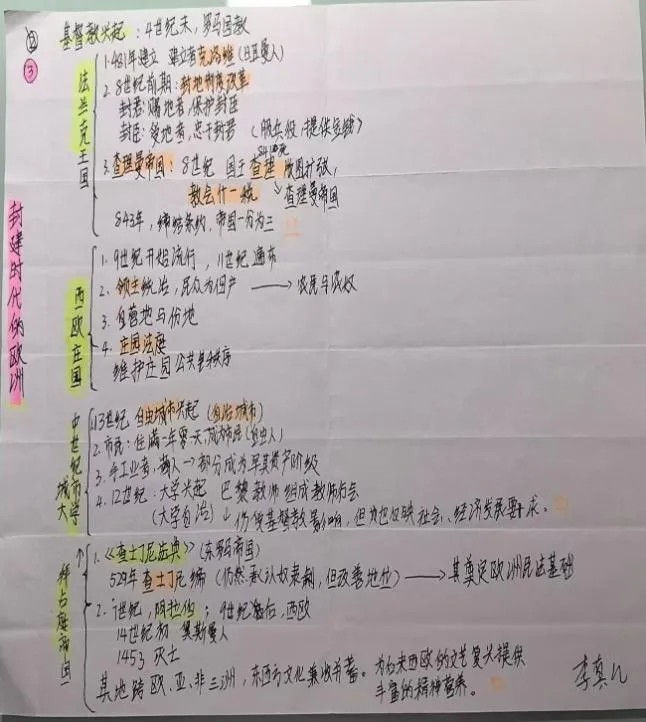 ③
基督教兴起：4世纪末，罗马国教
封建时代的欧洲
法兰克王国
1. 481年建立 建立者克洛维（日耳曼人）
2. 8世纪前期：封地制度改革
封君：赐地者，保护封臣
封臣：受地者，忠于封君 （服兵役，提供金钱）
3. 查理曼帝国：8世纪 国王查理 版图扩张，
教会什一税 查理曼帝国
843年，缔结条约，帝国一分为三
西欧庄园
1. 9世纪开始流行，11世纪遍布
2. 领主统治，民众为佃户 → 农民与农奴
3. 自营地与份地
4. 庄园法庭
维护庄园公共秩序
中世纪城市大学
1. 13世纪 自由城市兴起（自治城市）
2. 市民：住满一年零一天，成为市民（自由人）
3. 手工业者、商人→部分成为早期资产阶级
4. 12世纪：大学兴起 巴黎教师组成教师行会
（大学自治） 仍受基督教影响，但also反映社会、经济发展要求。
拜占庭帝国
1.《查士丁尼法典》（东罗马帝国）
529年查士丁尼编（仍然承认奴隶制，但改善地位） → 其奠定欧洲民法基础
2. 7世纪，阿拉伯；9世纪 后，西欧
14世纪初 奥斯曼人
1453 灭亡
其地跨欧、亚、非三洲，东西方文化兼收并蓄。为后来西欧的文艺复兴提供
丰富的精神营养。